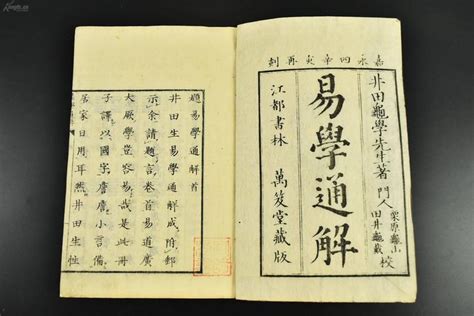 嘉永四辛亥再刻
井田龜學先生著
門人
栗原龜山
田井龜藏
校
易學通解
江都書林 萬笈堂藏版
題易學通解首
井田生易學通解成附郵
示余請題言卷首易道廣
大厥學豈容易哉是此冊
子譯以國字小言備
居家日用耳然井田生性